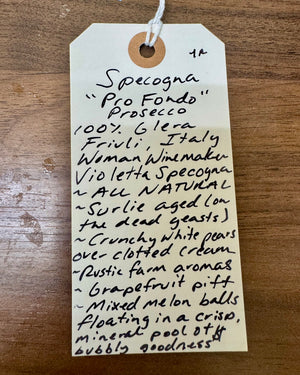 1A
Specogna
"Pro Fondo"
Prosecco
100% Glera
Friuli, Italy
Woman Winemaker
Violetta Specogna
~ ALL NATURAL
~ Surlie aged (on
the dead yeasts)
~ Crunchy white pears
over clotted cream
~ Rustic farm aromas
~ Grapefruit pitt
~ Mixed melon balls
floating in a crisp,
mineral pool of
bubbly goodness